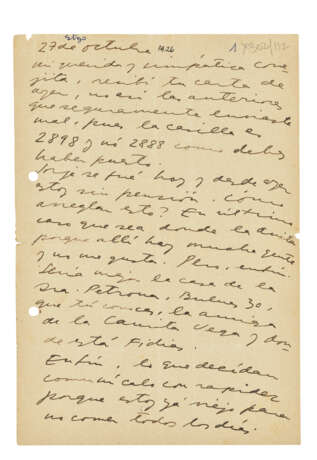 Stgo
27 de octubre 1926
mi querida y simpática cone-
jita, recibí tu carta de
ayer, no así las anteriores
que seguramente enviaste
mal, pues la casilla es
2898 y nó 2888 como debes
haber puesto.
Jorge se fué hoy y desde ayer
estoy sin pensión. Como
arreglan esto? En último
caso que sea donde la
porque allí hay mucha gente
y no me gusta. Pero, enfin.
Sería mejor la casa de la
sra. Petrona, Bulnes 30,
que tú conoces, la amiga
de la Camita Vega y don-
de está Fidias.
Enfin, lo que decidan
comunícalo con rapidez
porque estoy yá viejo para
no comer todos los días.